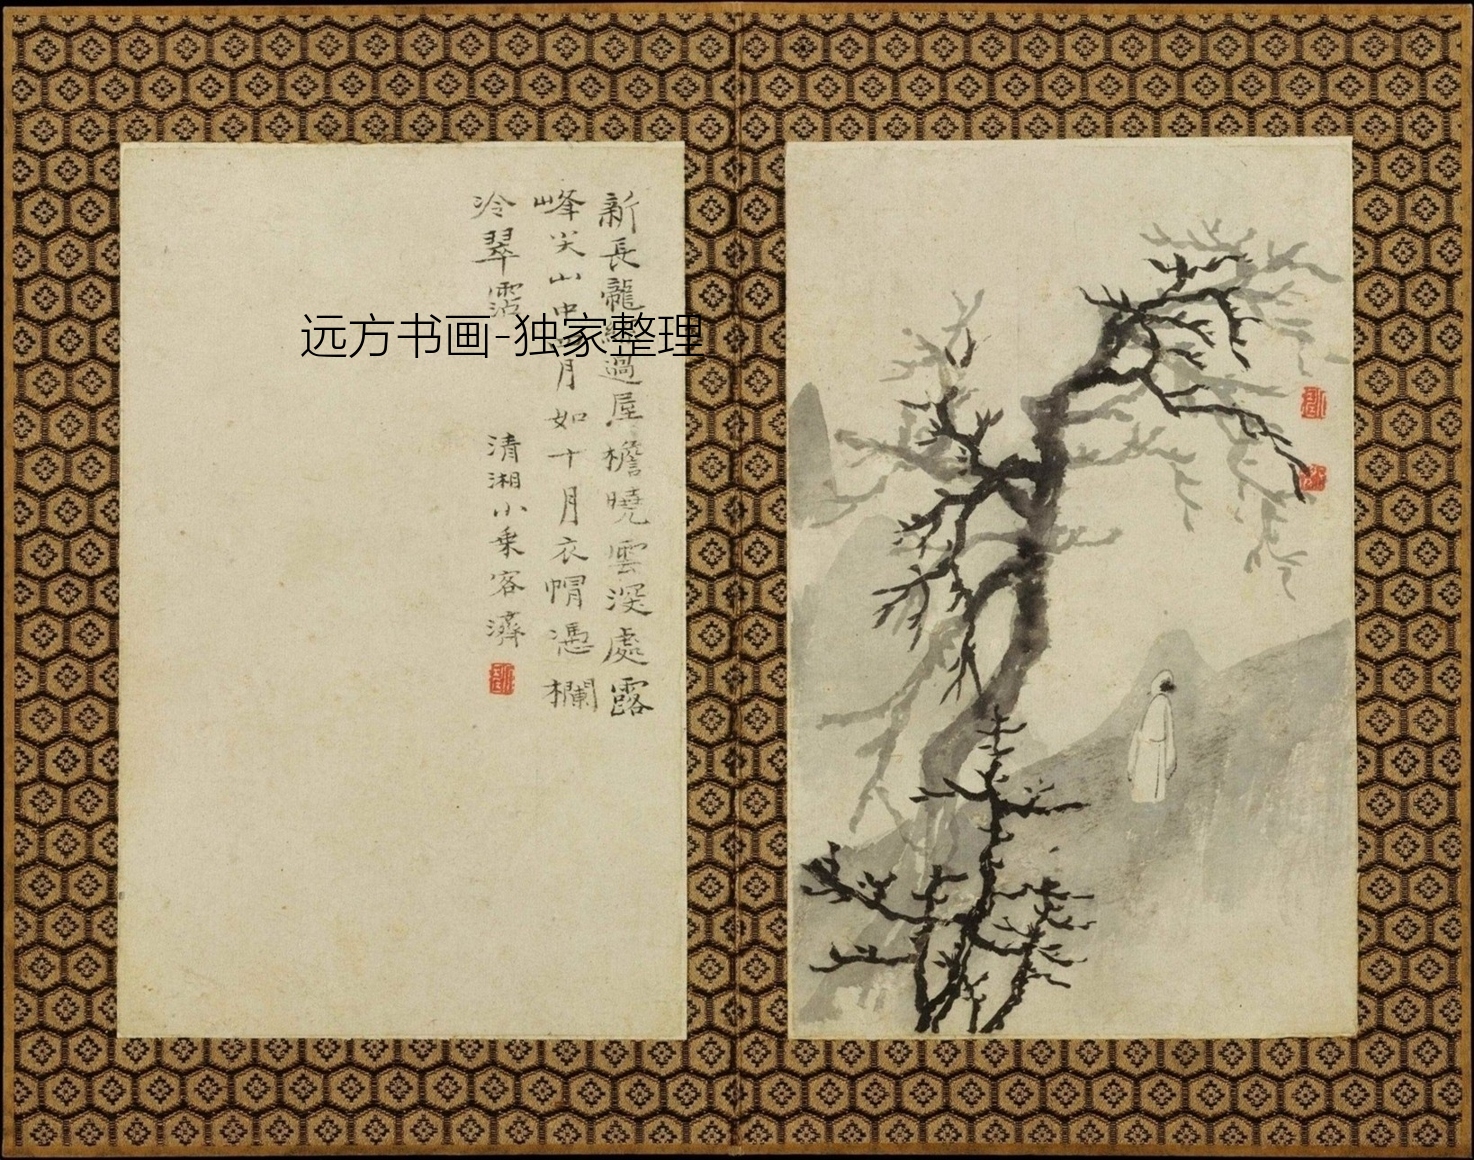 新長龍孫過屋檐曉雲深處露
峰尖山中四月如十月衣帽憑欄
冷翠霑
清湘小乗客濟
远方书画-独家整理